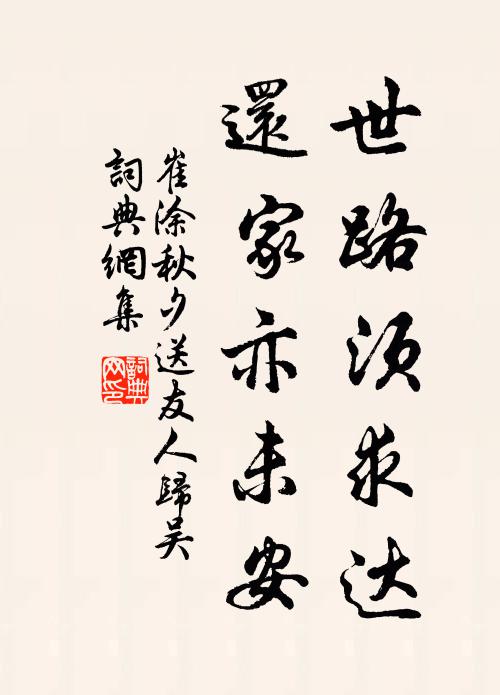 世路须求达
還家亦未安
崔涂秋夕送友人歸吴
詞典網集
詞典网印